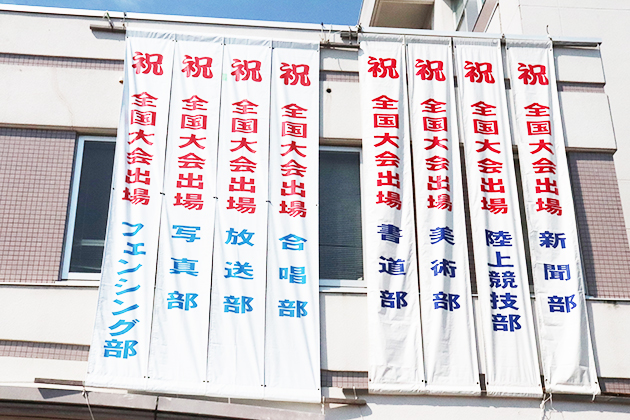 祝 全国大会出場 フェンシング部
祝 全国大会出場 写真部
祝 全国大会出場 放送部
祝 全国大会出場 合唱部
祝 全国大会出場 書道部
祝 全国大会出場 美術部
祝 全国大会出場 陸上競技部
祝 全国大会出場 新聞部